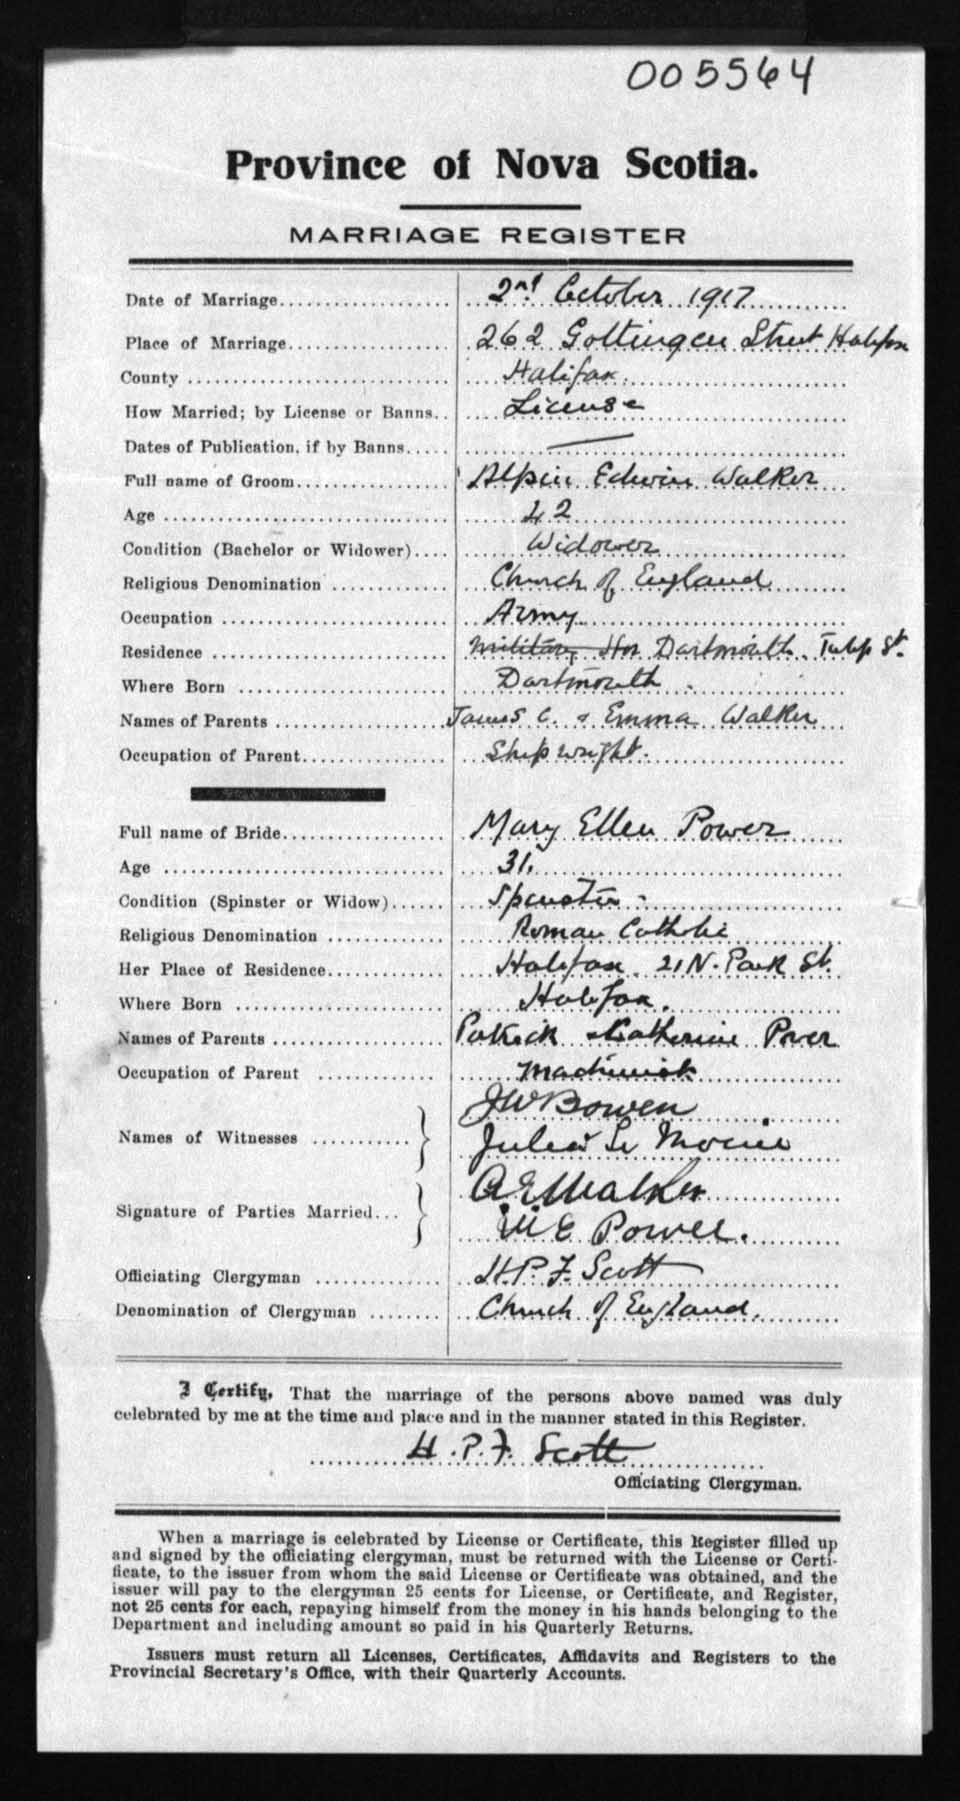 005564
Province of Nova Scotia.
MARRIAGE REGISTER
Date of Marriage 2nd October 1917
Place of Marriage 262 Gottingen Street Halifax
County Halifax
How Married; by License or Banns License
Dates of Publication, if by Banns —
Full name of Groom Alpin Edwin Walker
Age 42
Condition (Bachelor or Widower) Widower
Religious Denomination Church of England
Occupation Army
Residence Military Dartmouth. Tulip St.
Where Born Dartmouth
Names of Parents James C. & Emma Walker
Occupation of Parent Shipwright.
Full name of Bride Mary Ellen Power
Age 31.
Condition (Spinster or Widow) Spinster -
Religious Denomination Roman Catholic
Her Place of Residence Halifax 21 N. Park St.
Where Born Halifax.
Names of Parents Patrick & Catherine Power
Occupation of Parent Machinist
J W Bowen
Names of Witnesses
Julia Le
A E Walker
Signature of Parties Married
M E Power.
Officiating Clergyman H. P. F. Scott
Denomination of Clergyman Church of England.
I Certify, That the marriage of the persons above named was duly
celebrated by me at the time and place and in the manner stated in this Register.
H. P. F. Scott
Officiating Clergyman.
When a marriage is celebrated by License or Certificate, this Register filled up
and signed by the officiating clergyman, must be returned with the License or Certi-
ficate, to the issuer from whom the said License or Certificate was obtained, and the
issuer will pay to the clergyman 25 cents for License, or Certificate, and Register,
not 25 cents for each, repaying himself from the money in his hands belonging to the
Department and including amount so paid in his Quarterly Returns.
Issuers must return all Licenses, Certificates, Affidavits and Registers to the
Provincial Secretary's Office, with their Quarterly Accounts.